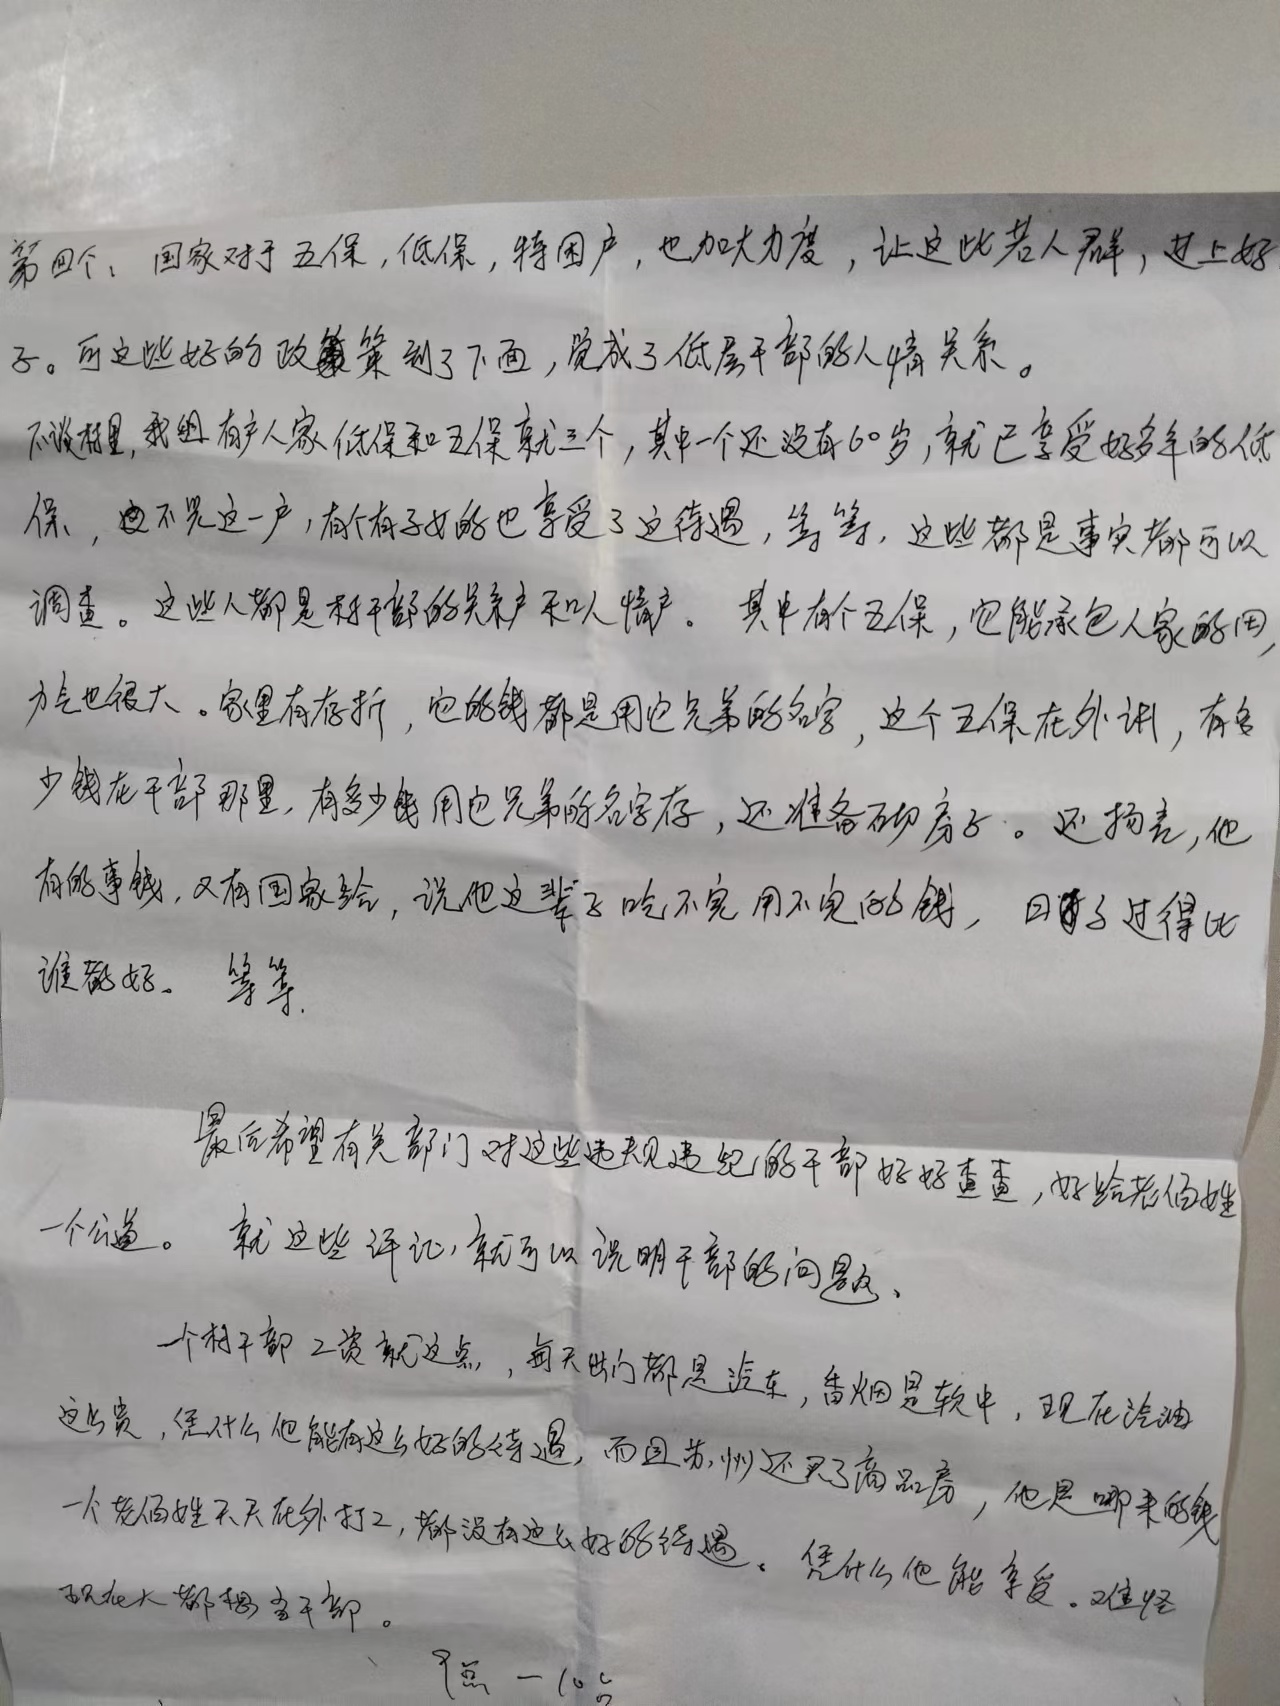 第四个：国家对于五保，低保，特困户，也加大力度，让这些苦人群，过上好
子。可这些好的政策到了下面，变成了低层干部的人情关系。
不谈村里，我组有户人家低保和五保就三个，其中一个还没有60岁，就已享受好多年的低
保，也不光这一户，有个有子女的也享受了这待遇，等等，这些都是事实都可以
调查。这些人都是村干部的关系户和人情户。其中有个五保，它能承包人家的田，
力气也很大。家里有存折，它的钱都是用它兄弟的名字，这个五保在外讲，有多
少钱在干部那里，有多少钱用它兄弟的名字存，还准备砌房子。还扬言，他
有的事钱，又有国家给，说他这辈子吃不完用不完的钱，日子过得比
谁都好。等等.
最后希望有关部门对这些违规违纪的干部好好查查，好给老百姓
一个公道。就这些评记，就可以说明干部的问题、
一个村干部工资就这点，每天出门都是汽车，香烟是软中，现在汽油
这么贵，凭什么他能有这么好的待遇，而且苏州还买了商品房，他是哪来的钱
一个老百姓天天在外打工，都没有这么好的待遇。凭什么他能享受。难怪
现在人都想当干部。